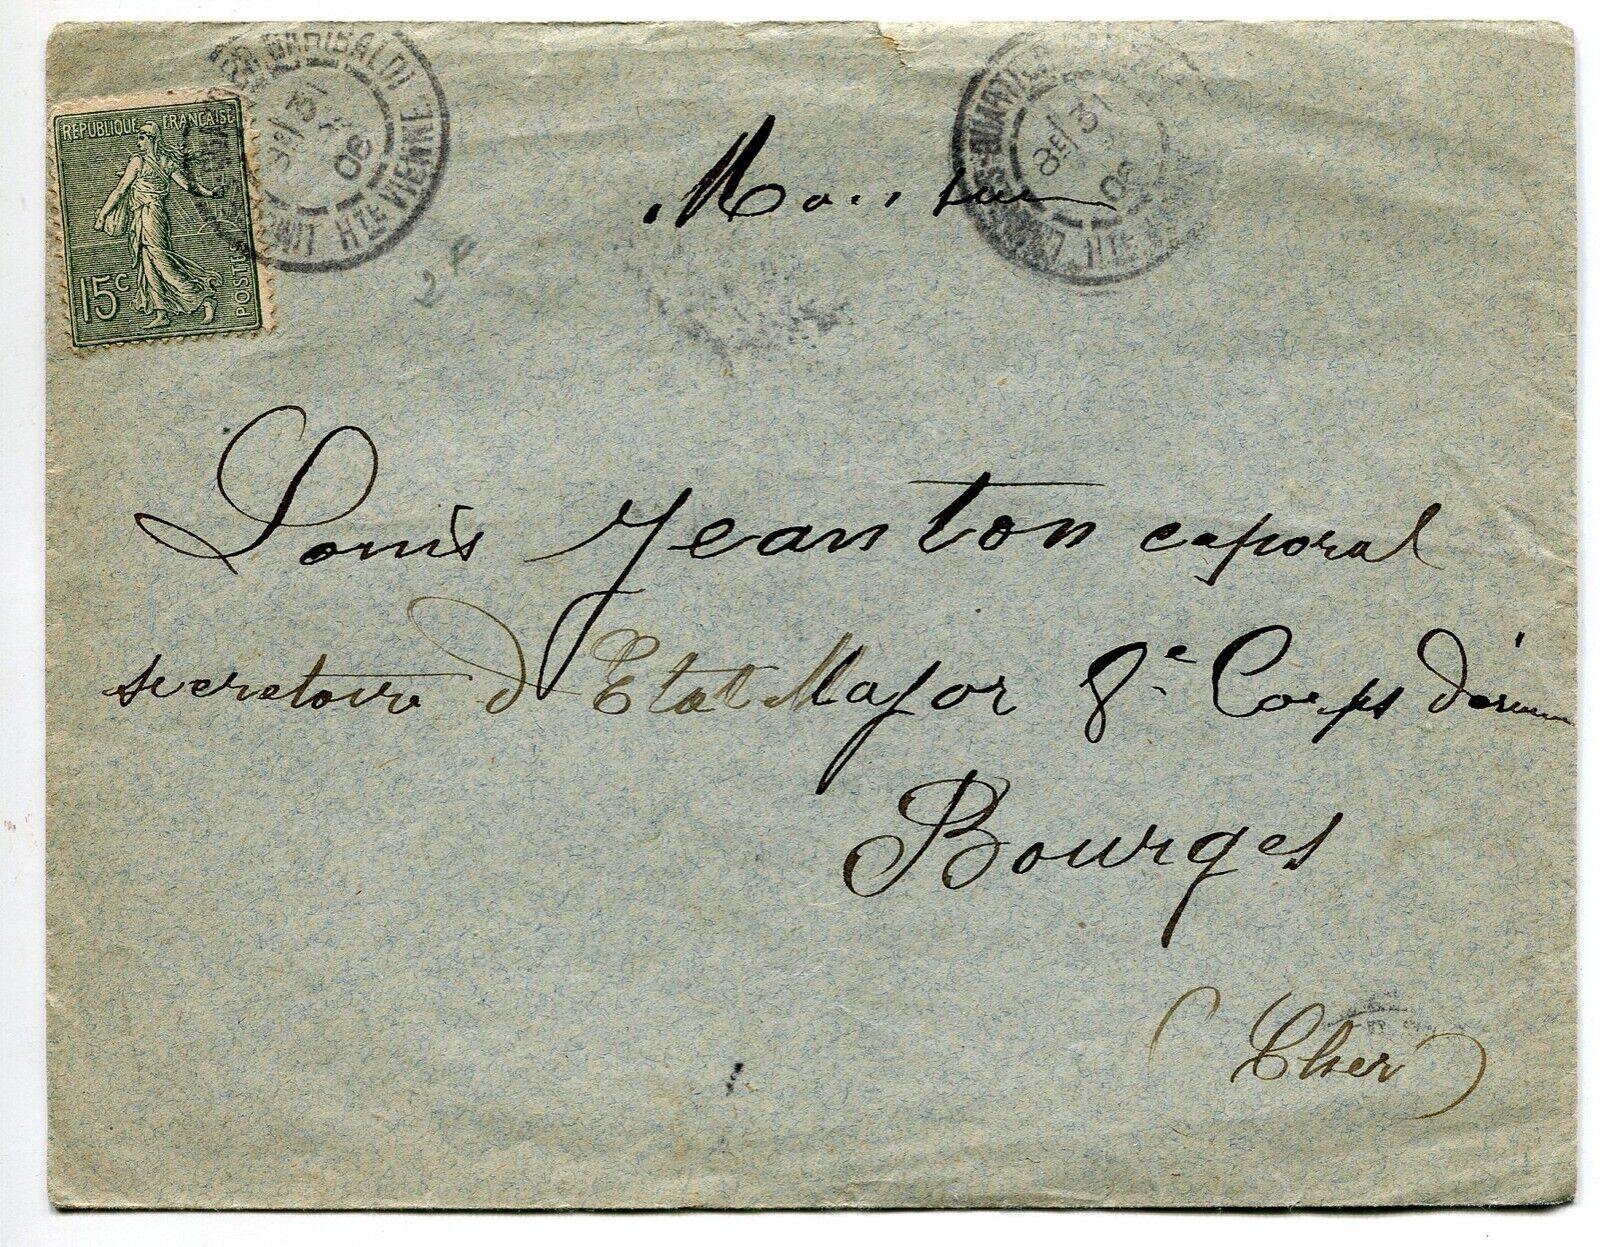 REPUBLIQUE FRANCAISE
15c
POSTES
GARIBALDI
HTE VIENNE
31
06
QUARTIER
31
2 F
Monsieur
Louis Jeanton caporal
secretaire d'Etat Major 8e Corps d'armée
Bourges
(Cher)